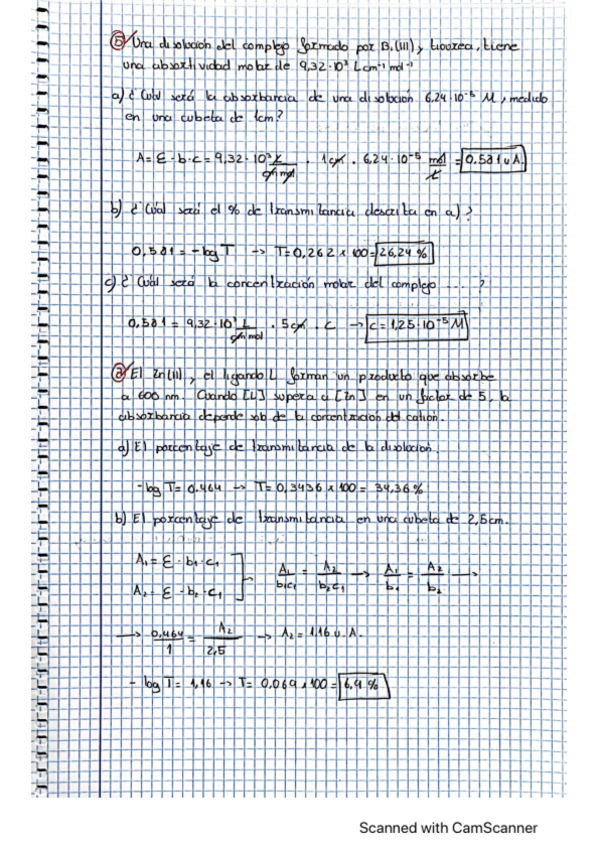 5) Una disolución del complejo formado por Bi(III) y tiourea, tiene
una absortividad molar de 9,32·10³ L cm⁻¹ mol⁻¹
a) ¿Cuál será la absorbancia de una disolución 6,24·10⁻⁵ M, medida
en una cubeta de 1cm?
A = Ɛ · b · c = 9,32 · 10³ L/cm mol · 1cm · 6,24·10⁻⁵ mol/L = 0.581 u A.
b) ¿Cuál será el % de transmitancia descrita en a)?
0,581 = -log T → T = 0,262 x 100 = 26,24 %
c) ¿Cuál será la concentración molar del complejo .... ?
0,581 = 9,32·10³ L/cm mol · 5cm · c → c = 1,25·10⁻⁵ M
El Zn(II), el ligando L forman un producto que absorbe
a 600 nm. Cuando [L] supera a [Zn] en un factor de 5, la
absorbancia depende solo de la concentración del catión.
a) El porcentaje de transmitancia de la disolución.
-log T = 0.464 → T = 0,3436 x 100 = 34,36 %
b) El porcentaje de transmitancia en una cubeta de 2,5cm.
A₁ = Ɛ · b₁ · c₁
A₂ = Ɛ · b₂ · c₁
A₁/b₁c₁ = A₂/b₂c₁ → A₁/b₁ = A₂/b₂ →
→ 0,464/1 = A₂/2,5 → A₂ = 1.16 u. A.
- log T = 1,16 → T = 0,069 x 100 = 6,9 %
Scanned with CamScanner